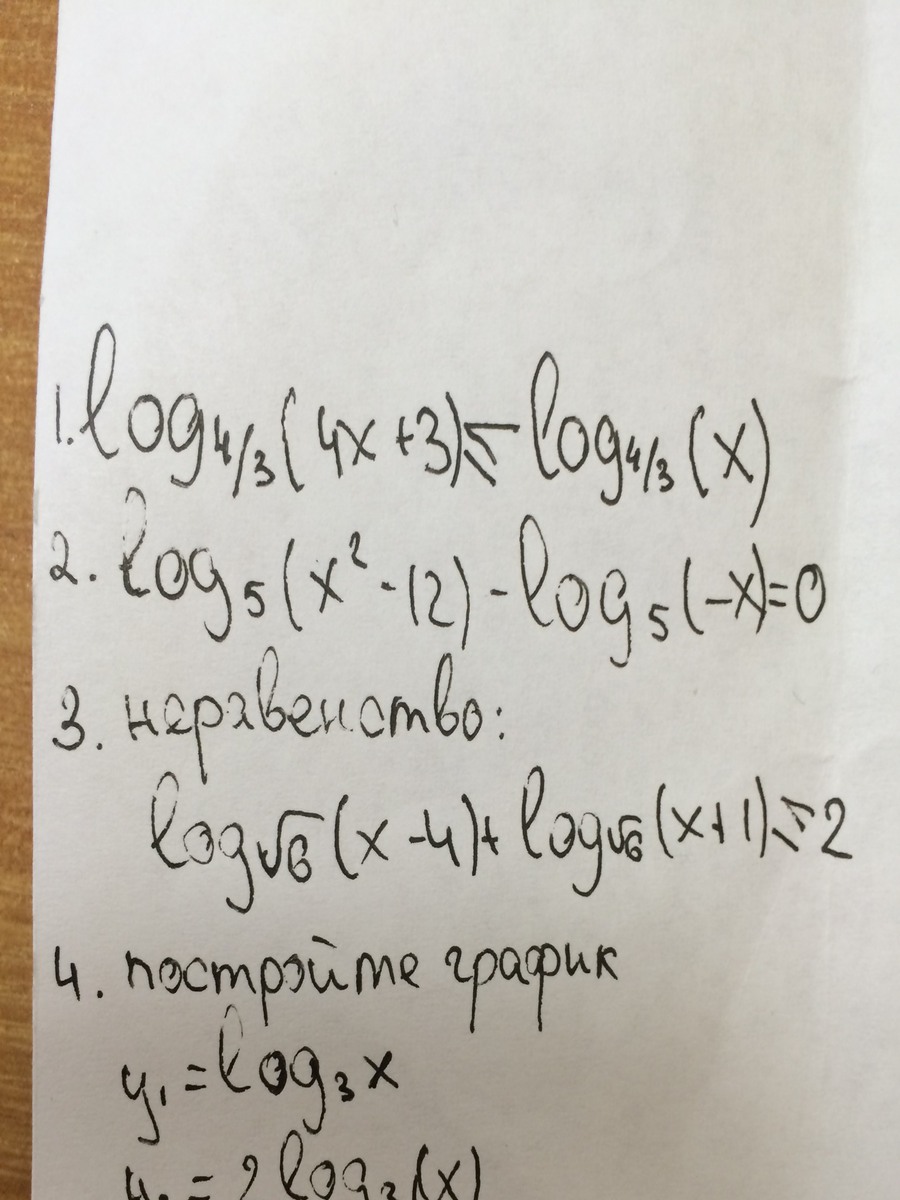 1. log₄/₃(4x+3) ≤ -log₄/₃(x)
2. log₅(x²-12)-log₅(-x)=0
3. неравенство:
log√6(x-4)+log√6(x+1)≤2
4. постройте график
y₁=log₃x
= 2log₃(x)